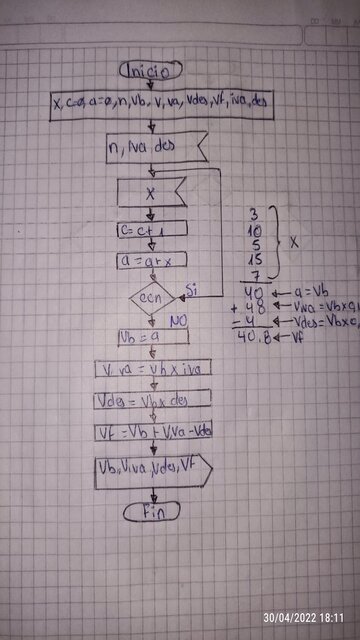 Inicio
x, c=0, a=0, n, Vb, v, va, Vdes, Vf, iva, des
n, iva, des
x
c=c+1
a=a+x
c<n
Si
NO
Vb=a
Viva=Vbxiva
Vdes=Vbxdes
Vf=Vb+Viva-Vdes
Vb, Viva, Vdes, Vf
Fin
3
10
5
15
7
x
40 ← a=Vb
+ 4.8 ← Viva=Vbx0,1
- 4 ← Vdes=Vbx0,
40.8 ← Vf
30/04/2022 18:11